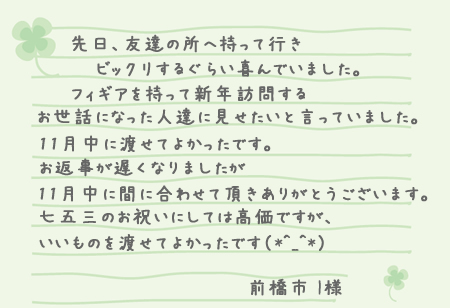 先日、友達の所へ持って行き
ビックリするぐらい喜んでいました。
フィギアを持って新年訪問する
お世話になった人達に見せたいと言っていました。
11月中に渡せてよかったです。
お返事が遅くなりましたが
11月中に間に合わせて頂きありがとうございます。
七五三のお祝いにしては高価ですが、
いいものを渡せてよかったです(*^_^*)
前橋市 I様